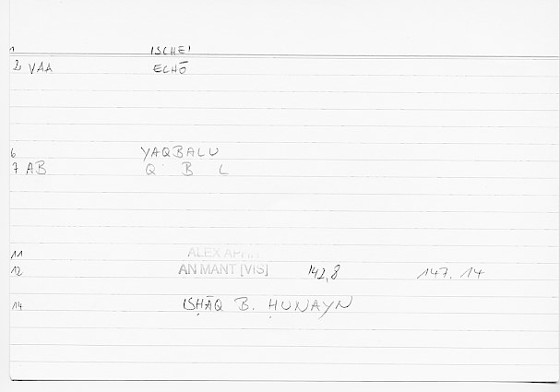 1 ISCHEI
2 VAA ECHŌ
6 YAQBALU
7 AB Q B L
11 ALEX APHR
12 AN MANT [VIS] 142,8 147.14
14 ISḤĀQ B. ḤUNAYN